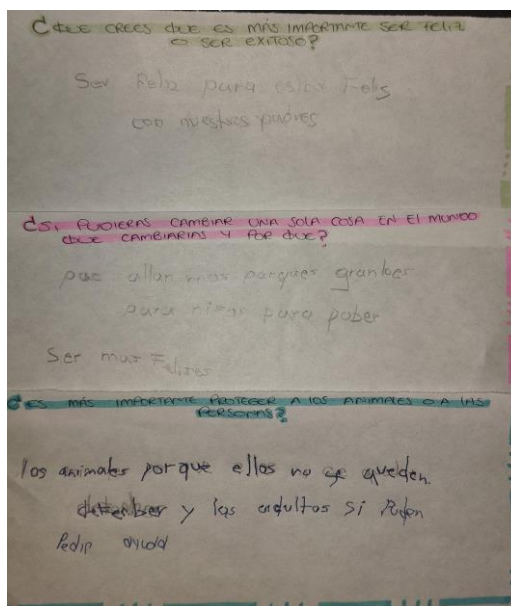 ¿QUE CREES QUE ES MÁS IMPORTANTE SER FELIZ
O SER EXITOSO?
Ser feliz para estar Felis
con nuestros padres
¿SI PUDIERAS CAMBIAR UNA SOLA COSA EN El MUNDO
QUE CAMBIARIAS Y POR QUE?
que allan mas parques granbes
para niños para pober
Ser mas Felises
¿ES MÁS IMPORTANTE PROTEGER A lOS ANIMALES O A lAS
PERSONAS?
los animales porque ellos no se queden
y los adultos si Puden
Pedir ayuda